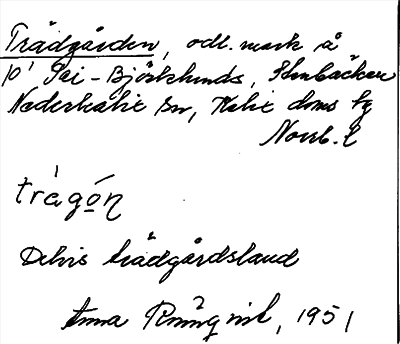 Trädgården, odl. mark å
10' Pei-Björklunds, Stenbäcken
Nederkalix sn, Kalix doms tg
Norrb. l
trägón
Delvis trädgårdsland
Anna Rönnqvist, 1951